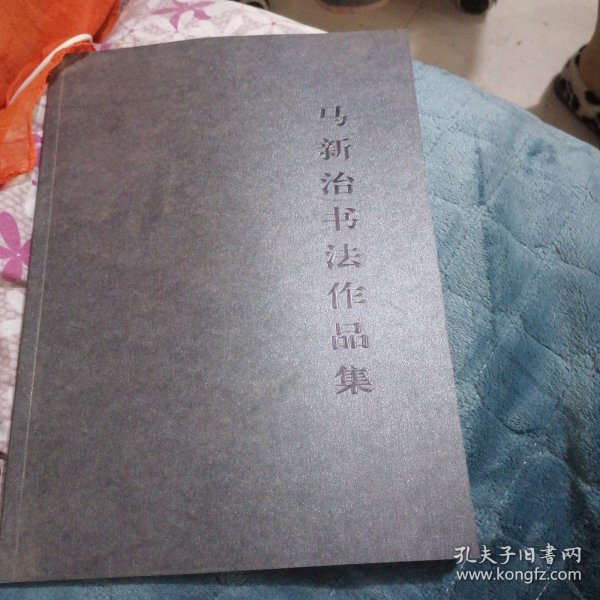 马新治书法作品集
孔夫子旧書网
www.kongfz.com